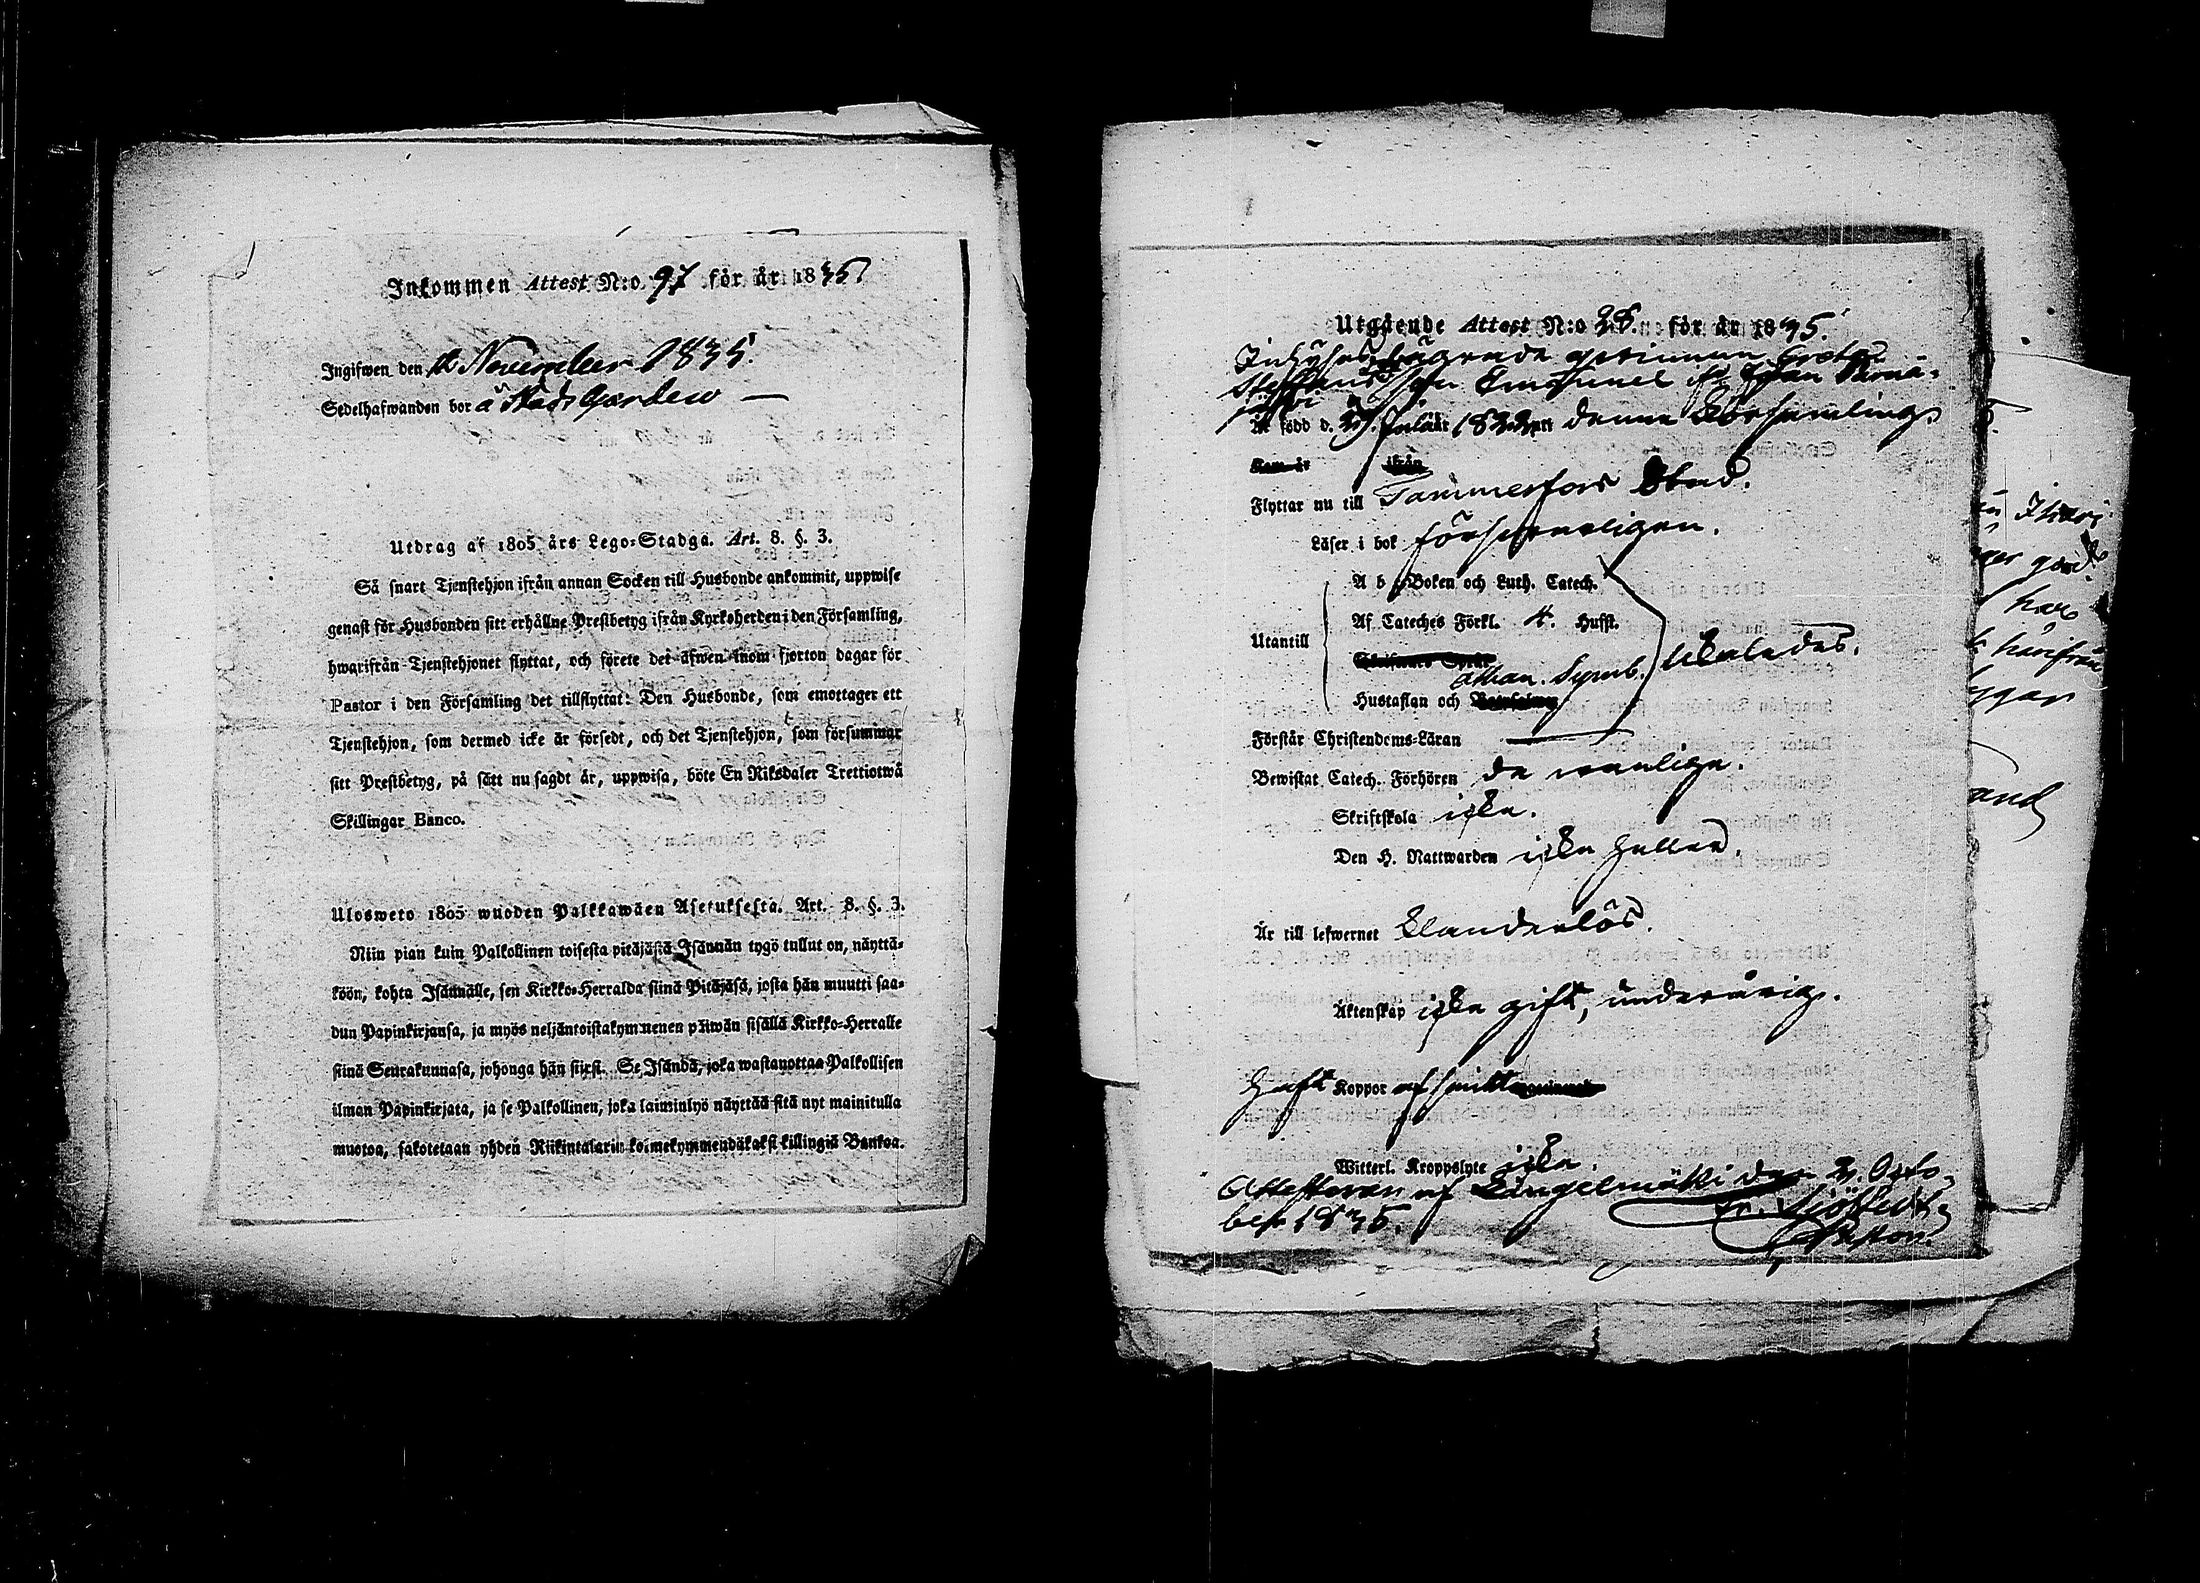 Inkommen Attest N:o 97 för år 1835
Ingifwen den November 1835.
Sedelhafwanden bor å Stads Garden —
Utdrag af 1805 års Lego-Stadga. Art. 8. §. 3.
Så snart Tjenstehjon ifrån annan Socken till Husbonde ankommit, uppwise
genast för Husbonden sitt erhållne Prestbetyg ifrån Kyrkoherden i den Församling,
hwarifrån Tjenstehjonet flyttat, och förete det äfwen inom fjorton dagar för
Pastor i den Församling det tillflyttat: Den Husbonde, som emottager ett
Tjenstehjon, som dermed icke är försedt, och det Tjenstehjon, som försummar
sitt Prestbetyg, på sätt nu sagdt är, uppwisa, böte En Riksdaler Trettiotwå
Skillingar Banco.
Ulosweto 1805 wuoden Palkkawäen Asetuksesta. Art. 8. §. 3.
Niin pian kuin Palkollinen toisesta pitäjästä Isännän tygö tullut on, näyttä-
köön, kohta Isännälle, sen Kirkko-Herralda siinä Pitäjäsä, josta hän muutti saa-
dun Papinkirjansa, ja myös neljäntoistakymmenen päiwän sisällä Kirkko-Herralle
siinä Seurakunnasa, johonga hän siirsi. Se Isändä, joka wastanottaa Palkollisen
ilman Papinkirjata, ja se Palkollinen, joka laiminlyö näyttää sitä nyt mainitulla
muotoa, sakotetaan yhden Riikintalarin kolmekymmendäkaksi killingiä Bankoa.
Utgående Attest N:o 28. för år 1835.
Inhyses
son Emanuel ifrån
Är född d. 27. Julii 1822 denna Församling.
Kom år ifrån
Flyttar nu till Tammerfors Stad.
Läser i bok försvarligen.
A b c-Boken och Luth. Catech.
Af Cateches Förkl. 4. Hufst.
Utantill
Athan. Symb. likaledes.
Hustaflan och
Förstår Christendoms-Läran
Bewistat Catech. Förhören de vanliga.
Skriftskola icke.
Den H. Nattwarden icke heller.
Är till lefwernet klanderlös.
Äktenskap icke gift, underårig.
Haft Koppor af smitt
Witterl. Kroppslyte icke.
Attesteras af Längelmäki den 2. Octo-
ber 1835.
Sjöstedt
Pastor.
har
härifrån